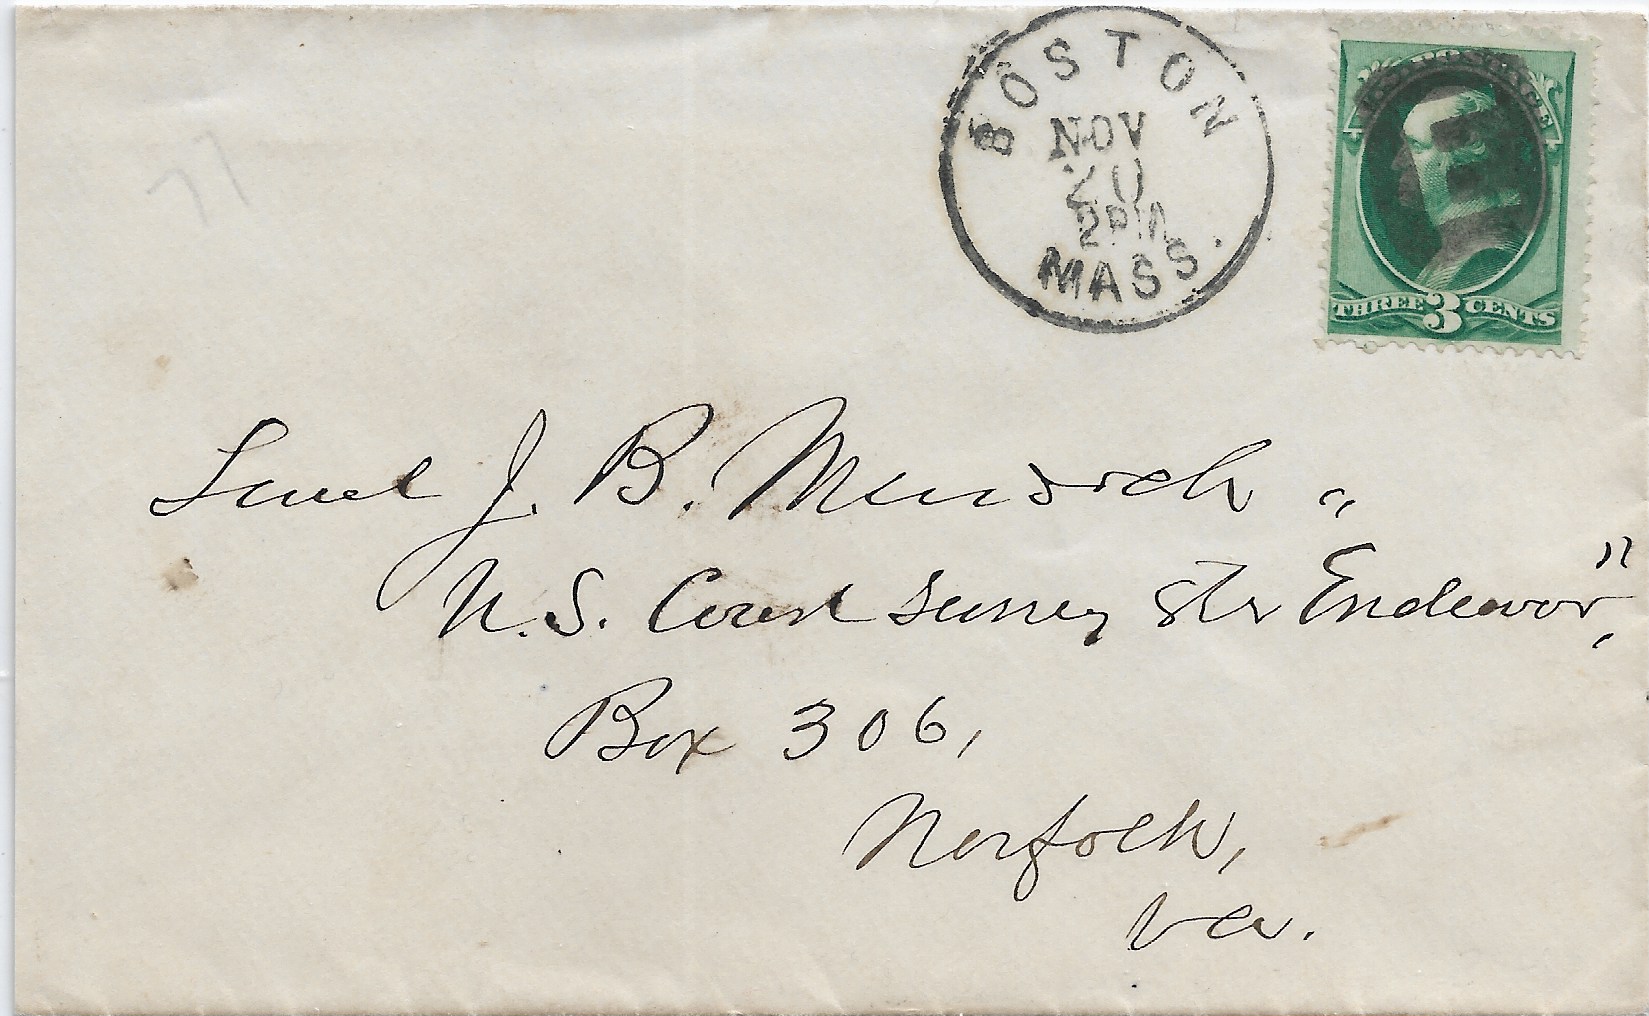 BOSTON
NOV
20
2 PM
MASS.
U.S. POSTAGE
THREE 3 CENTS
77
Lieut J. B. Murdock "
U. S. Coast Survey Str Endeavor",
Box 306,
Norfolk,
Va.